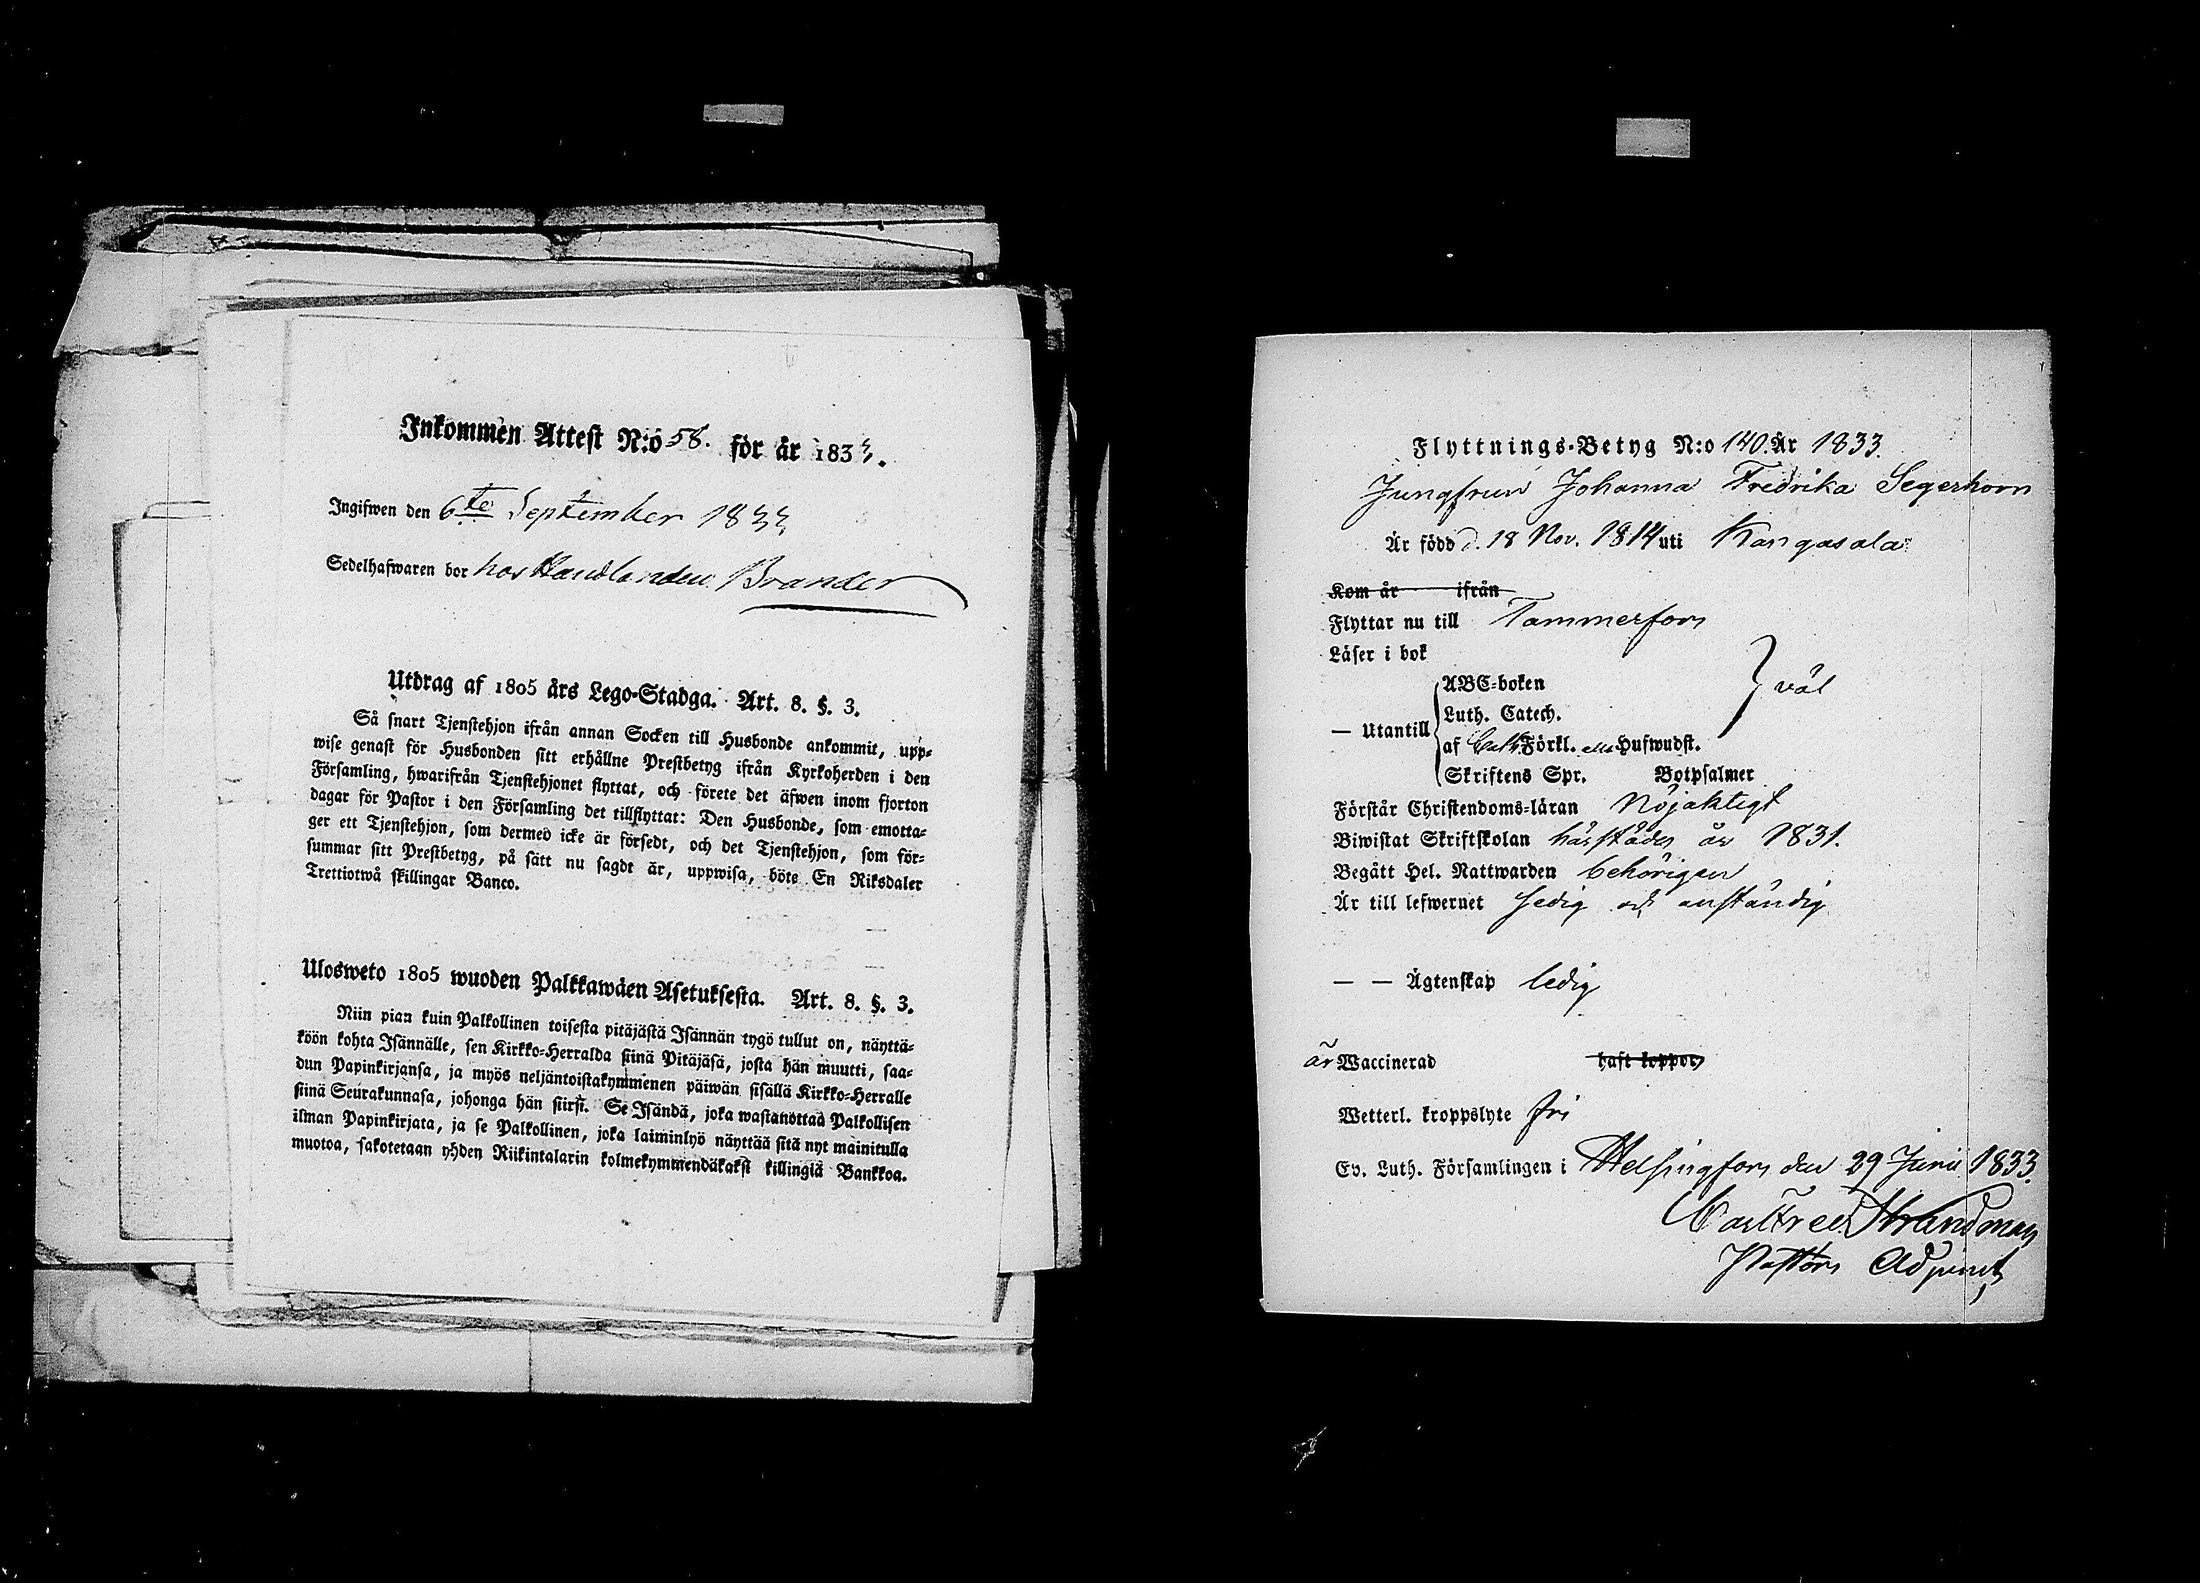 Inkommen Attest N:o 58. för år 1833.
Ingifwen den 6te September 1833
Sedelhafwaren bor hos Handlanden Brander
Utdrag af 1805 års Lego-Stadga. Art. 8. §. 3.
Så snart Tjenstehjon ifrån annan Socken till Husbonde ankommit, upp-
wise genast för Husbonden sitt erhållne Prestbetyg ifrån Kyrkoherden i den
Församling, hwarifrån Tjenstehjonet flyttat, och förete det äfwen inom fjorton
dagar för Pastor i den Församling det tillflyttat: Den Husbonde, som emotta-
ger ett Tjenstehjon, som dermed icke är försedt, och det Tjenstehjon, som för-
summar sitt Prestbetyg, på sätt nu sagdt är, uppwisa, böte En Riksdaler
Trettiotwå skillingar Banco.
Ulosweto 1805 wuoden Palkkawäen Asetuksesta. Art. 8. §. 3.
Niin pian kuin Palkollinen toisesta pitäjästä Isännän tygö tullut on, näyttä-
köön kohta Isännälle, sen Kirkko-Herralda siinä Pitäjäsä, josta hän muutti, saa-
dun Papinkirjansa, ja myös neljäntoistakymmenen päiwän sisällä Kirkko-Herralle
siinä Seurakunnasa, johonga hän siirsi. Se Isändä, joka wastanottaa Palkollisen
ilman Papinkirjata, ja se Palkollinen, joka laiminlyö näyttää sitä nyt mainitulla
muotoa, sakotetaan yhden Riikintalarin kolmekymmendäkaksi killingiä Bankkoa.
Flyttnings-Betyg N:o 140. År 1833.
Jungfrun Johanna Fredrika Segerhorn
Är född d. 18 Nov. 1814 uti Kangasala
Kom år ifrån
Flyttar nu till Tammerfors
Läser i bok
ABC-boken
Luth. Catech. } väl
— Utantill
af Förkl. Hufwudst.
Skriftens Spr. Botpsalmer
Förstår Christendoms-läran Nöjaktigt
Biwistat Skriftskolan härstädes år 1831.
Begått Hel. Nattwarden behörigen
Är till lefwernet sedig och anständig
— — Ägtenskap ledig
är Waccinerad haft koppor
Wetterl. kroppslyte fri
Ev. Luth. Församlingen i Helsingfors den 29 Junii 1833.
Carl Fred. Strandman
Pastors Adjunct